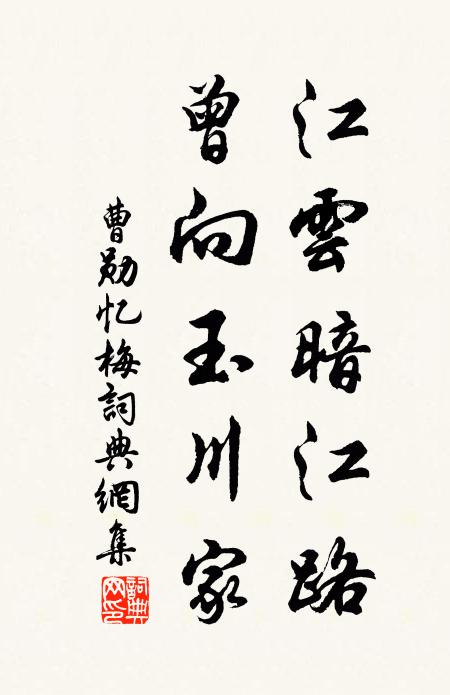 江雲暗江路
曾向玉川家
曹勛忆梅詞典網集
詞典网印